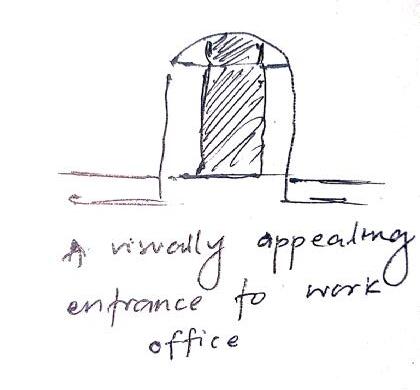 A visually appealing
entrance to work
office